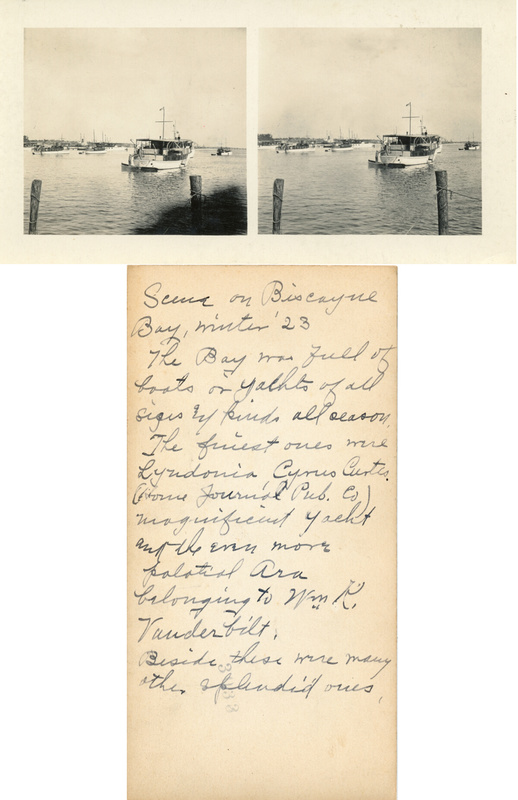 Scene on Biscayne
Bay, winter '23
The Bay was full of
boats or yachts of all
sizes & kinds all season.
The finest ones were
Lyndonia, Cyrus Curtis.
(Home Journal Pub. Co)
magnificent yacht
and the even more
palatial Ara
belonging to Wm K.
Vanderbilt.
Beside these were many
other splendid ones,